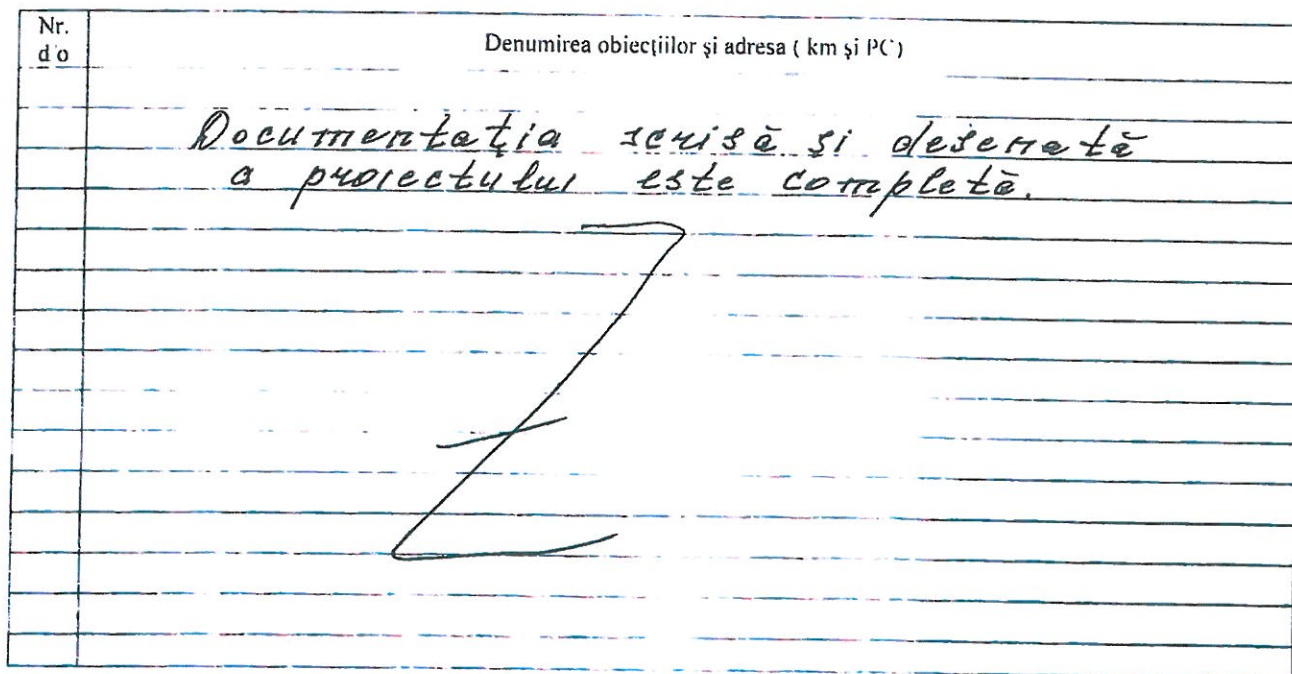 Nr.
d o
Denumirea obiecțiilor și adresa ( km și PC)
Documentația scrisă și desenată
a proiectului este completă.